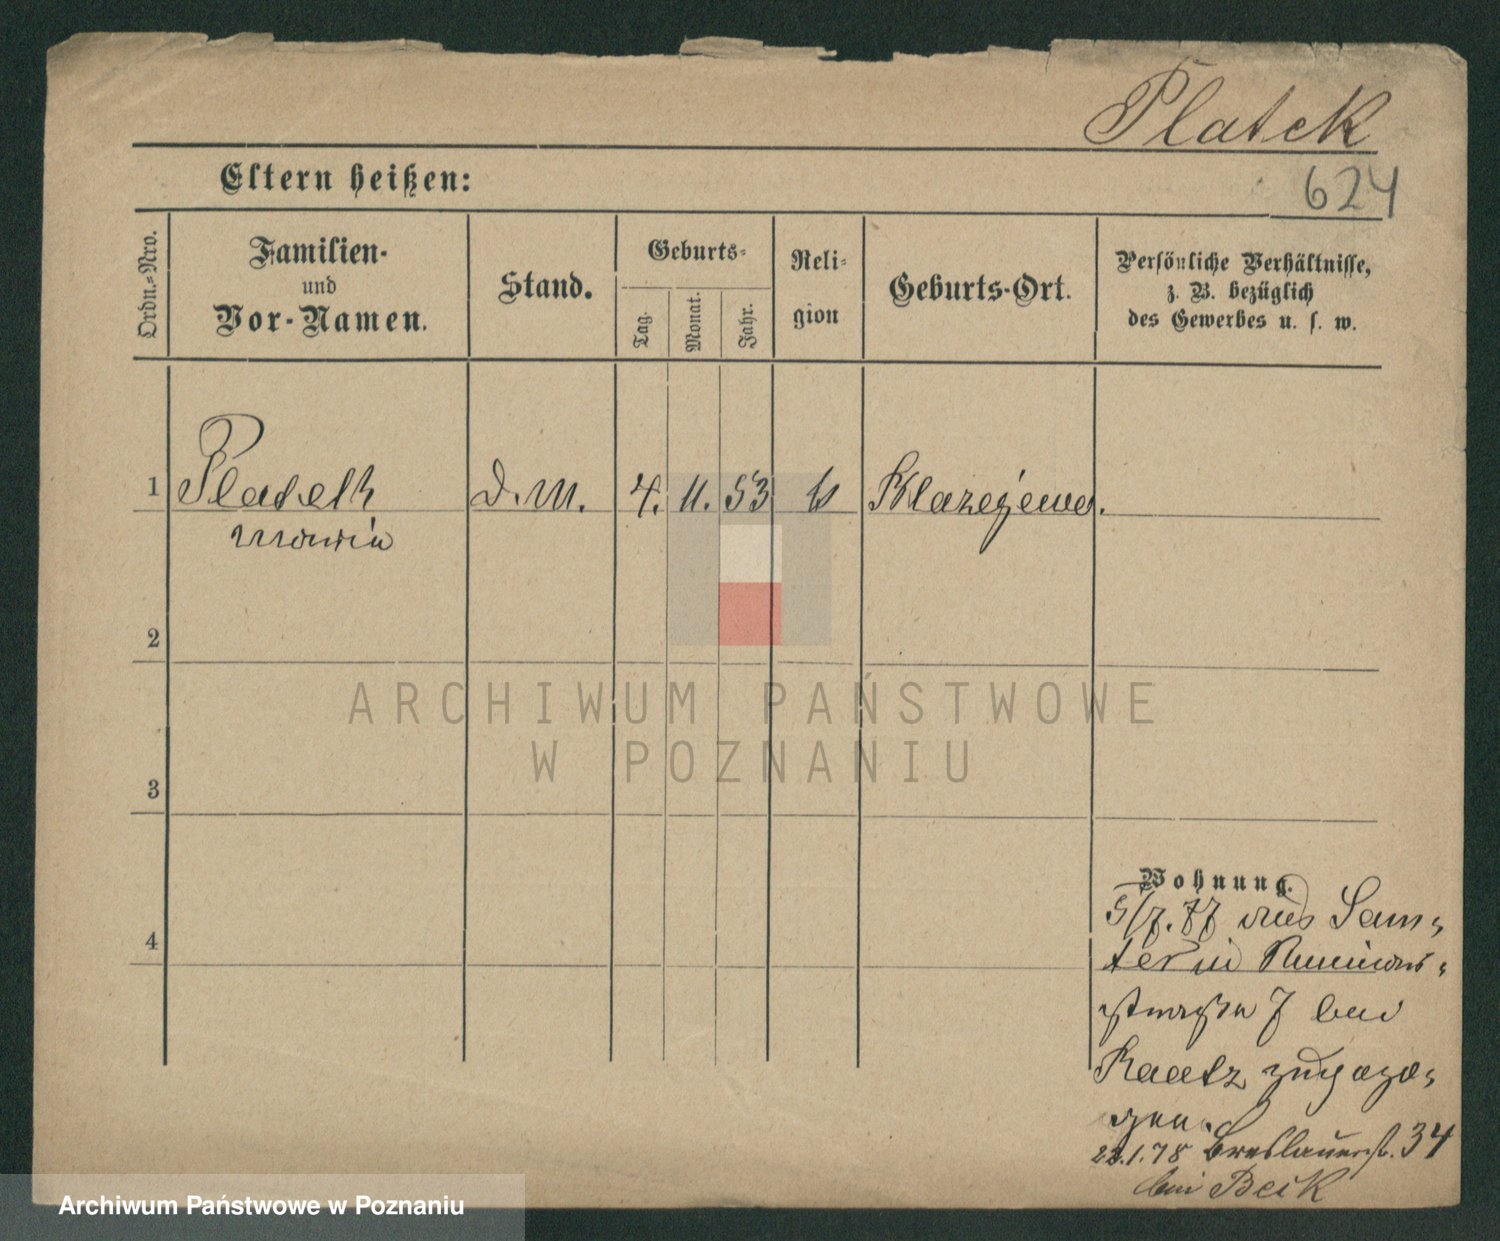 Platek
624
Eltern heißen:
Ordn.-Nro.
Familien-
und
Vor-Namen.
Stand.
Geburts-
Tag.
Monat.
Jahr.
Reli-
gion
Geburts-Ort.
Persönliche Verhältnisse,
z. B. bezüglich
des Gewerbes u. s. w.
1 Platek D. M. 4. 11. 53
Maria
2
ARCHIWUM PAŃSTWOWE
W POZNANIU
3
Wohnung.
5/7.77 aus Sam-
4
ter in
7 bei
Kaatz zugezo-
gen.
22.1.78 Breslauerst. 34
bei Beik
Archiwum Państwowe w Poznaniu